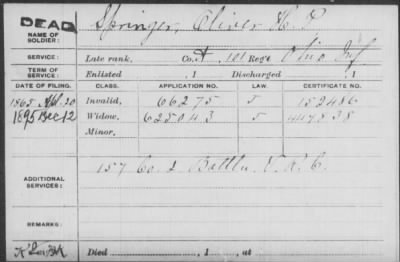 DEAD
NAME OF SOLDIER: Springer, Oliver H. P.
SERVICE: Late rank, Co. A, 101 Reg't Ohio Inf
TERM OF SERVICE: Enlisted , 1 Discharged , 1
DATE OF FILING. CLASS. APPLICATION NO. LAW. CERTIFICATE NO.
1865 Apl. 20 Invalid, 66275 5 152486
1895 Dec 12 Widow, 625043 5 447838
Minor,
ADDITIONAL SERVICES: 157 Co. 2 Battln. V. R. C.
REMARKS:
Died , 1 , at